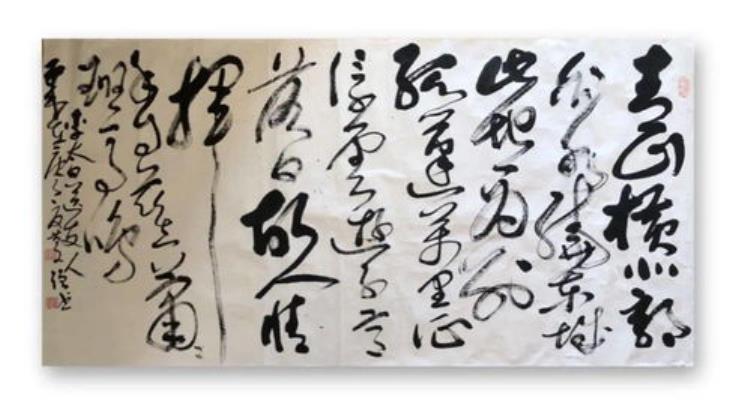 青山横北郭
白水繞東城
此地一为别
孤蓬萬里征
浮雲遊子意
落日故人情
揮
手自兹去蕭〻
班馬鳴
李太白送友人